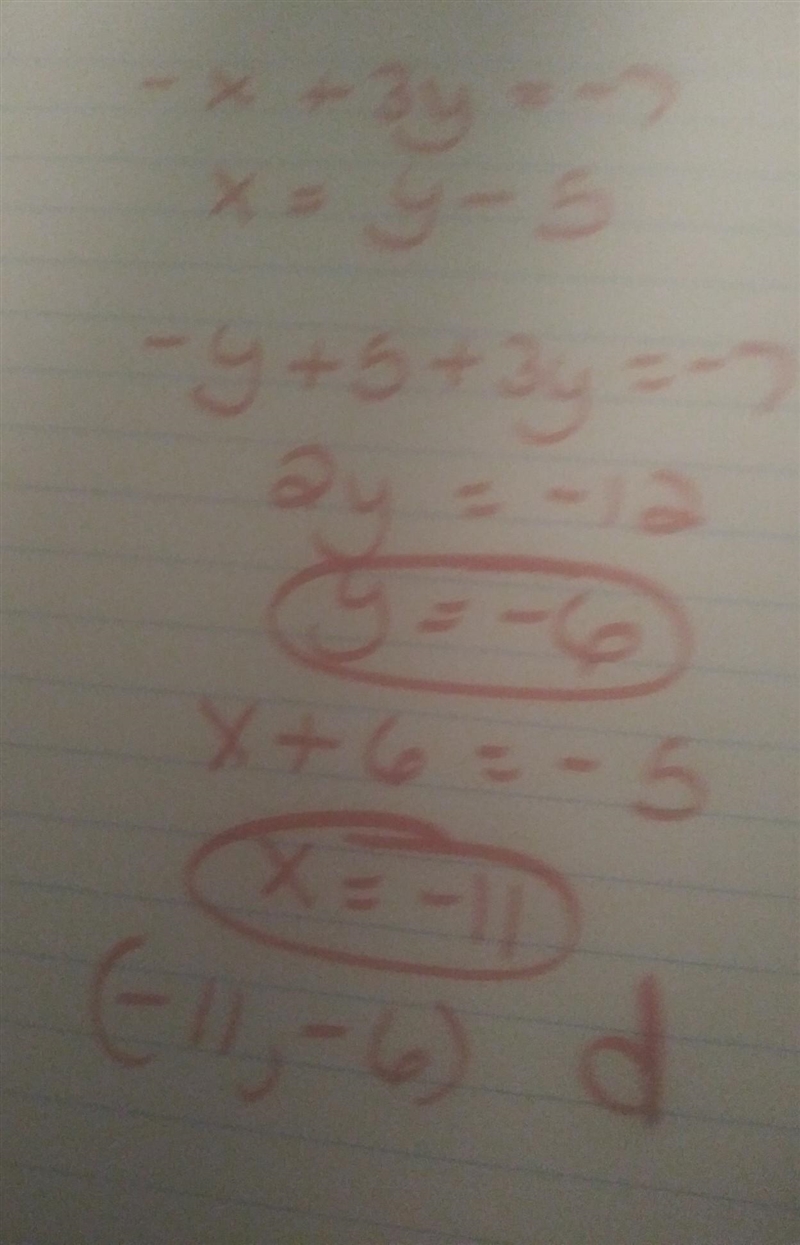 -x + 3y = -7
x = y - 5
-y + 5 + 3y = -7
2y = -12
y = -6
x + 6 = -5
x = -11
(-11, -6) d